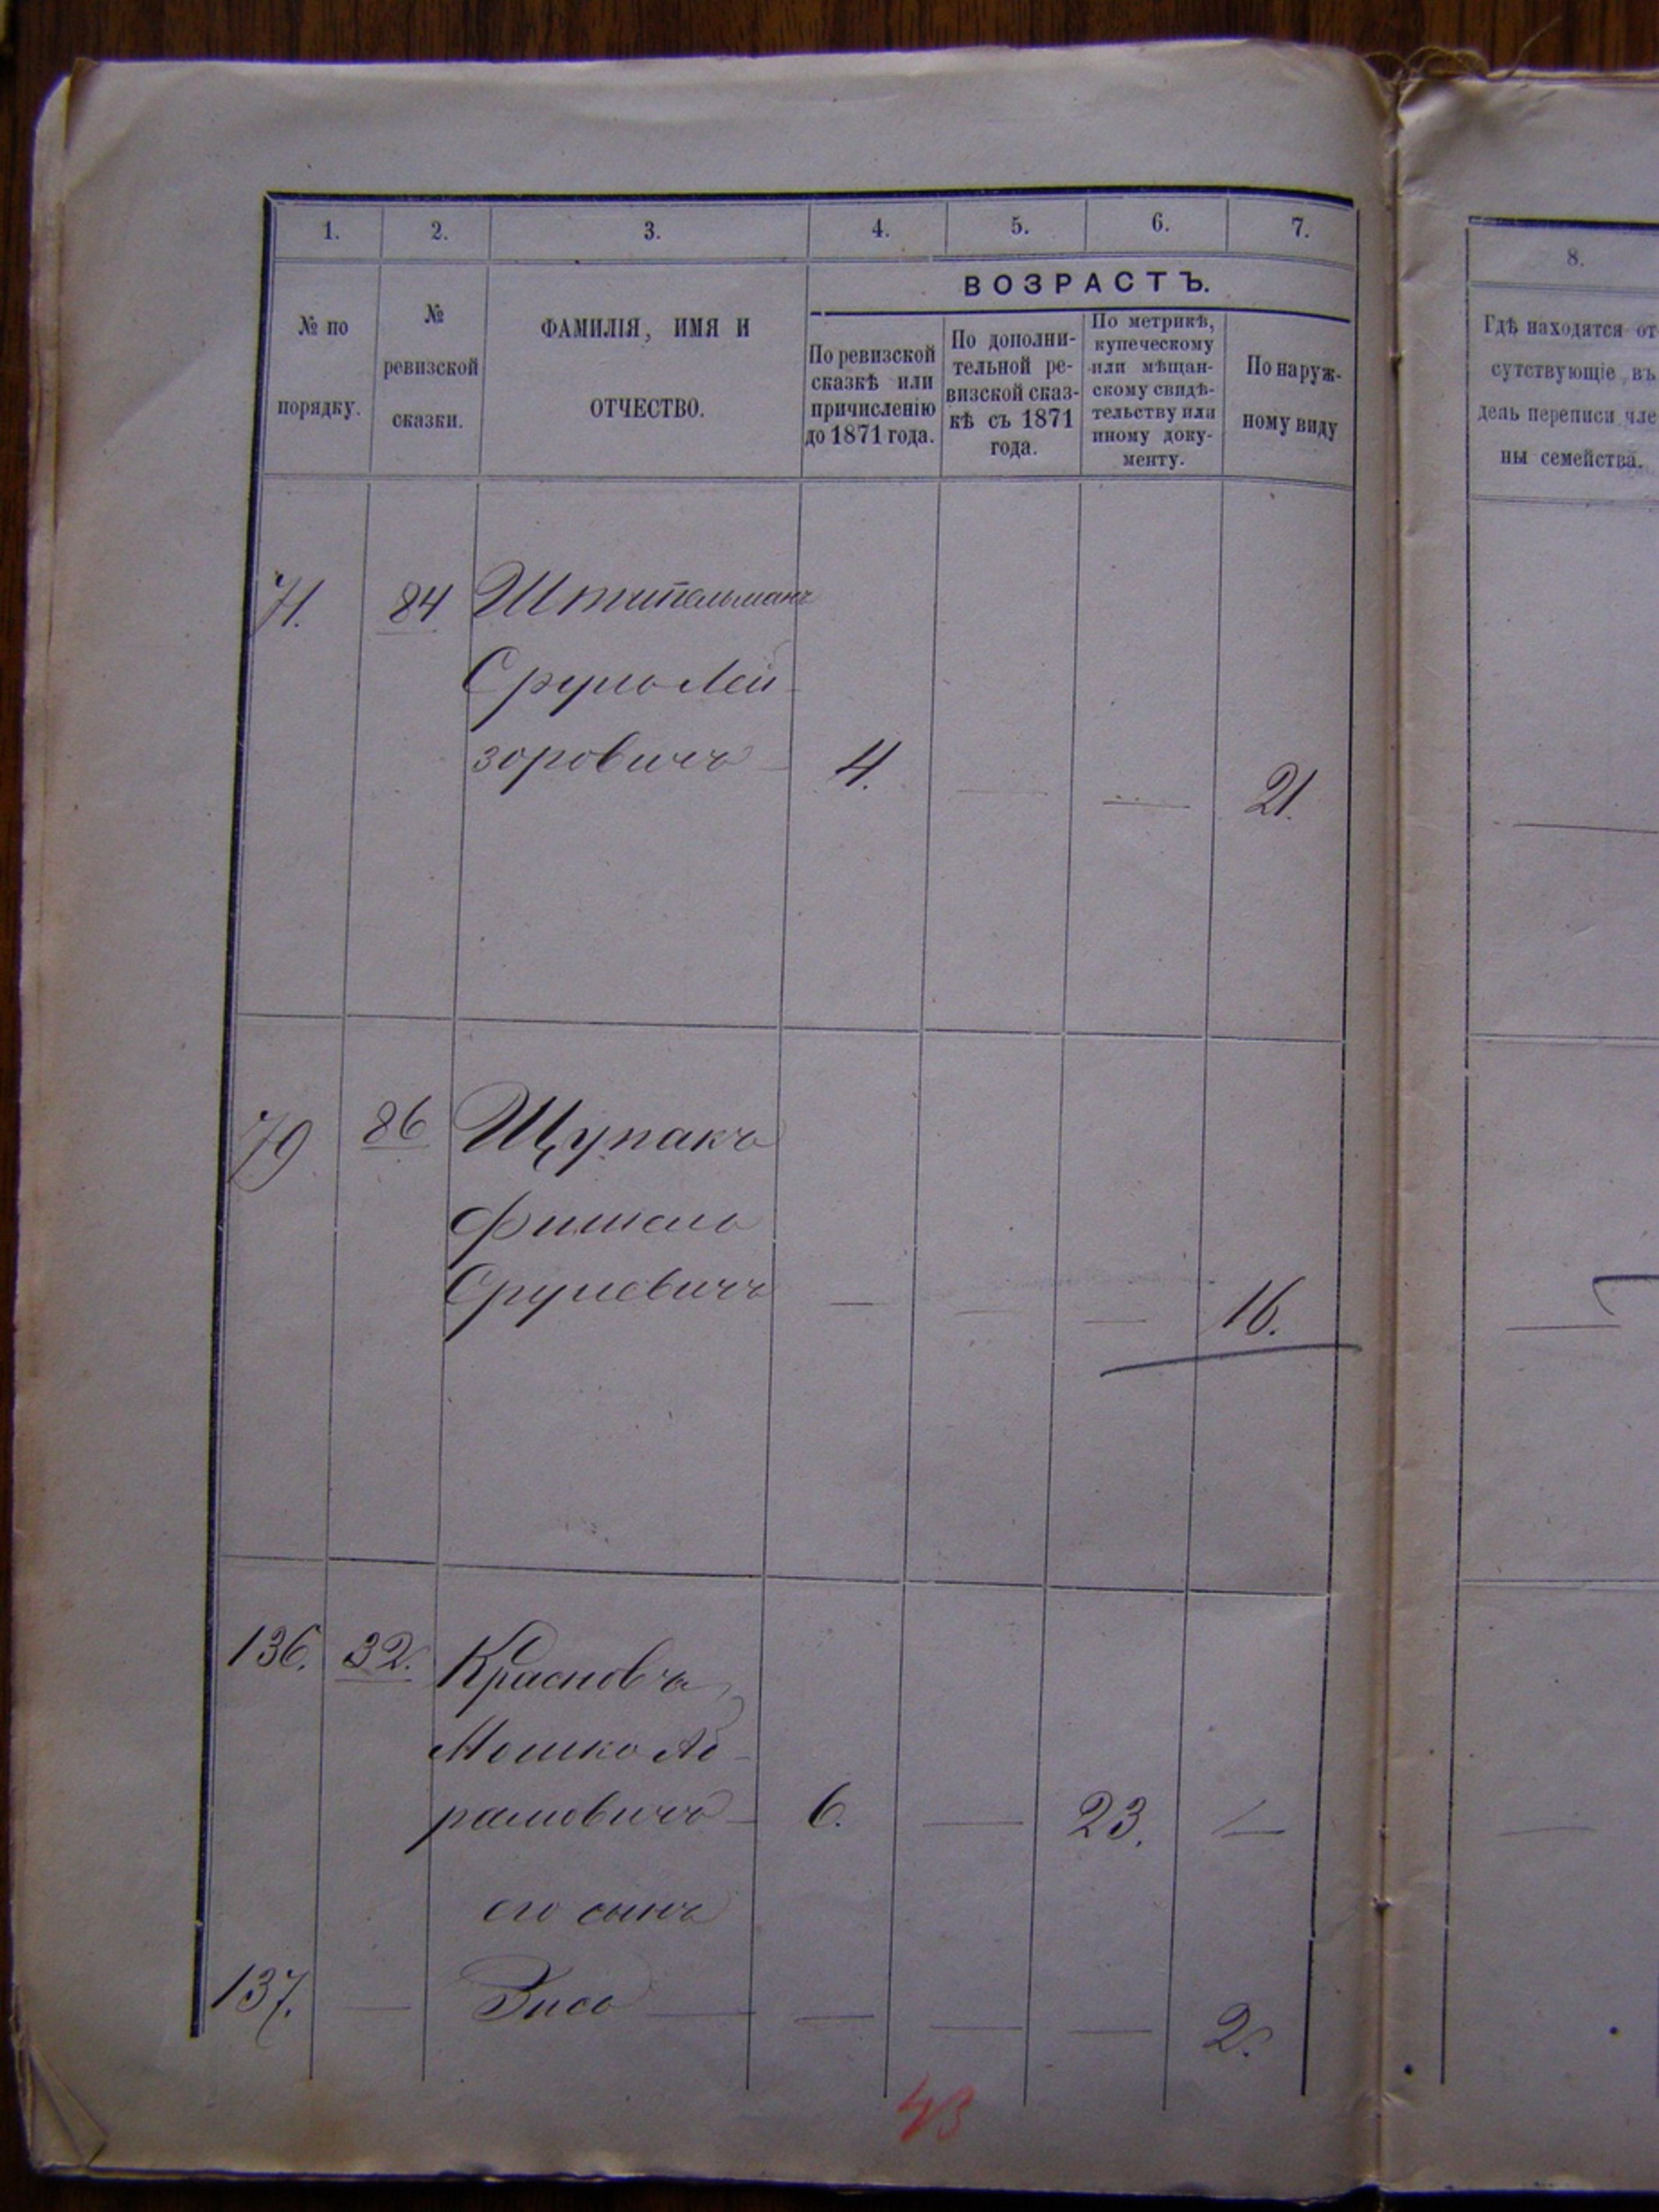 1. 2. 3. 4. 5. 6. 7.
ВОЗРАСТЪ.
№ по
порядку.
№
ревизской
сказки.
ФАМИЛІЯ, ИМЯ И
ОТЧЕСТВО.
По ревизской
сказкѣ или
причисленію
до 1871 года.
По дополни-
тельной ре-
визской сказ-
кѣ съ 1871
года.
По метрикѣ,
купеческому
или мѣщан-
скому свидѣ-
тельству или
иному доку-
менту.
По наруж-
ному виду
71. 84 Штительманъ
Сруль Лей-
зоровичъ 4. — — 21.
79 86 Щупакъ
Фишель
Срулевичъ — — — 16.
136. 32. Красновъ
Мошко Аб-
рамовичъ 6. — 23. —
его сынъ
137. — Зись — — — — 2.
43
8.
Гдѣ находятся от-
сутствующіе въ
день переписи чле-
ны семейства.